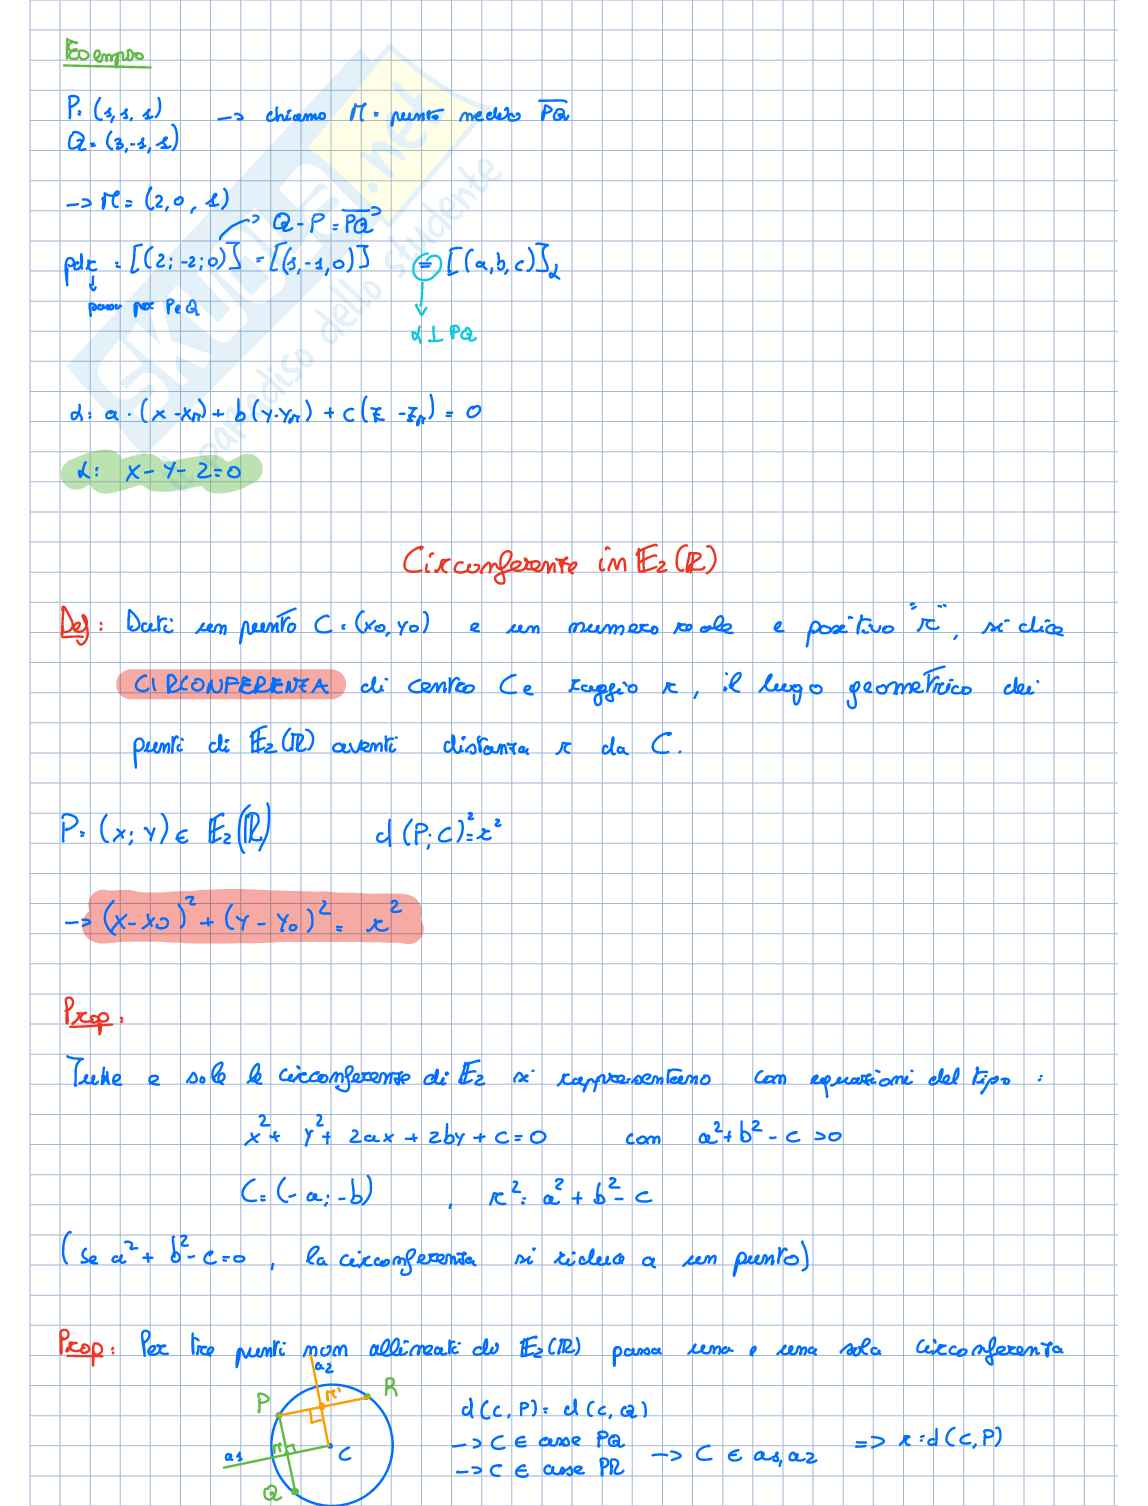 Esempio
P = (1, 1, 1) → chiamo M = punto medio PQ
Q = (3, -1, 1)
→ M = (2, 0, 1)
Q - P = PQ
pdr = [(2; -2; 0)] = [(1, -1, 0)] = [(a, b, c)]α
passa per P e Q
α ⊥ PQ
α: a · (x - xM) + b (y - yM) + c (z - zM) = 0
α: x - y - 2 = 0
Circonferenze in E2(R)
Def: Dati un punto C = (x0, y0) e un numero reale e positivo "r", si dice
CIRCONFERENZA di centro C e raggio r, il luogo geometrico dei
punti di E2(R) aventi distanza r da C.
P = (x; y) ∈ E2(R) d(P; C)² = r²
→ (x - x0)² + (y - y0)² = r²
Prop:
Tutte e sole le circonferenze di E2 si rappresentano con equazioni del tipo:
x² + y² + 2ax + 2by + c = 0 con a² + b² - c > 0
C = (-a; -b) , r² = a² + b² - c
(Se a² + b² - c = 0, la circonferenza si riduce a un punto)
Prop: Per tre punti non allineati di E2(R) passa una e una sola circonferenza
a2
P M' R
d(C, P) = d(C, Q)
→ C ∈ asse PQ
→ C ∈ asse PR
→ C ∈ a1, a2
=> r = d(C, P)
a1 M C
Q
SKUOLA.net
il paradiso dello studente